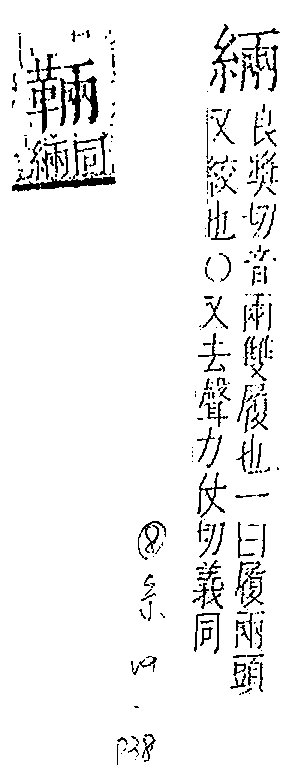 緉
良奬切音兩雙履也一曰履兩頭
又絞也〇又去聲力仗切義同
⑧糸
四
.
P38
䩫
緉同